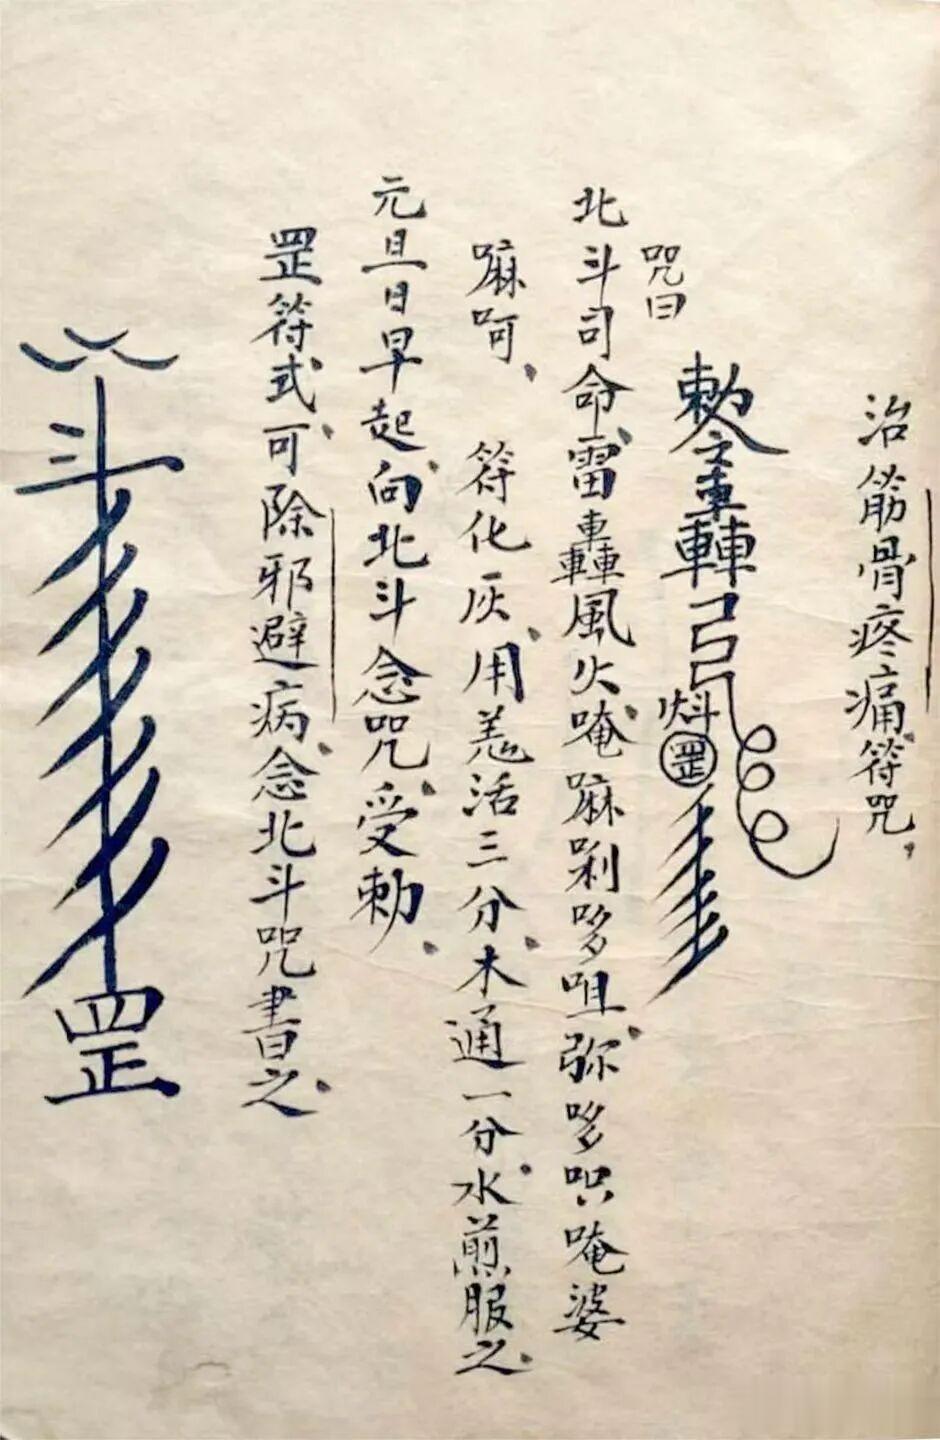 治筋骨疼痛符咒。
勅令轟弓㪷罡
咒曰
北斗司命、雷轟風火、唵嘛唎哆咀、弥哆呮唵婆
嘛呵、符化灰、用羌活三分、木通一分、水煎服之、
元旦日早起、向北斗念咒、受勅、
罡符式、可除邪避病、念北斗咒書之、
斗
罡